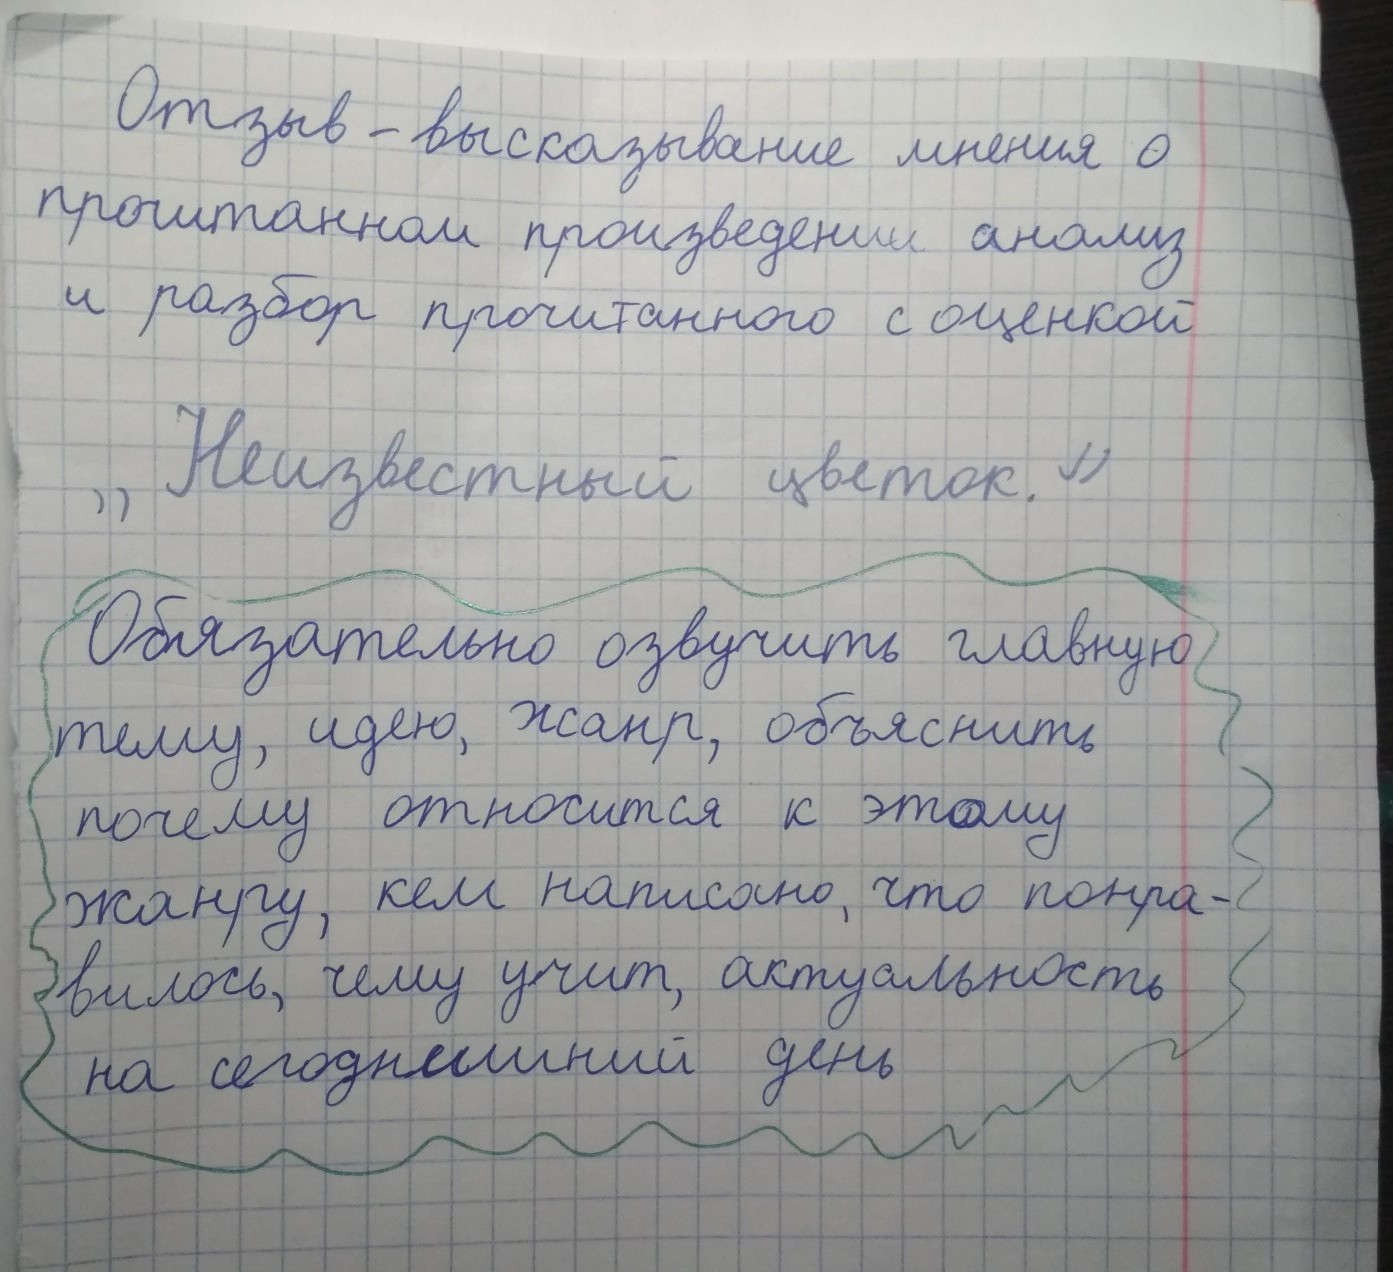 Отзыв - высказывание мнения о
прочитанном произведении анализ
и разбор прочитанного с оценкой
„Неизвестный цветок."
Обязательно озвучить главную
тему, идею, жанр, объяснить
почему относится к этому
жанру, кем написано, что понра-
вилось, чему учит, актуальность
на сегоднешний день